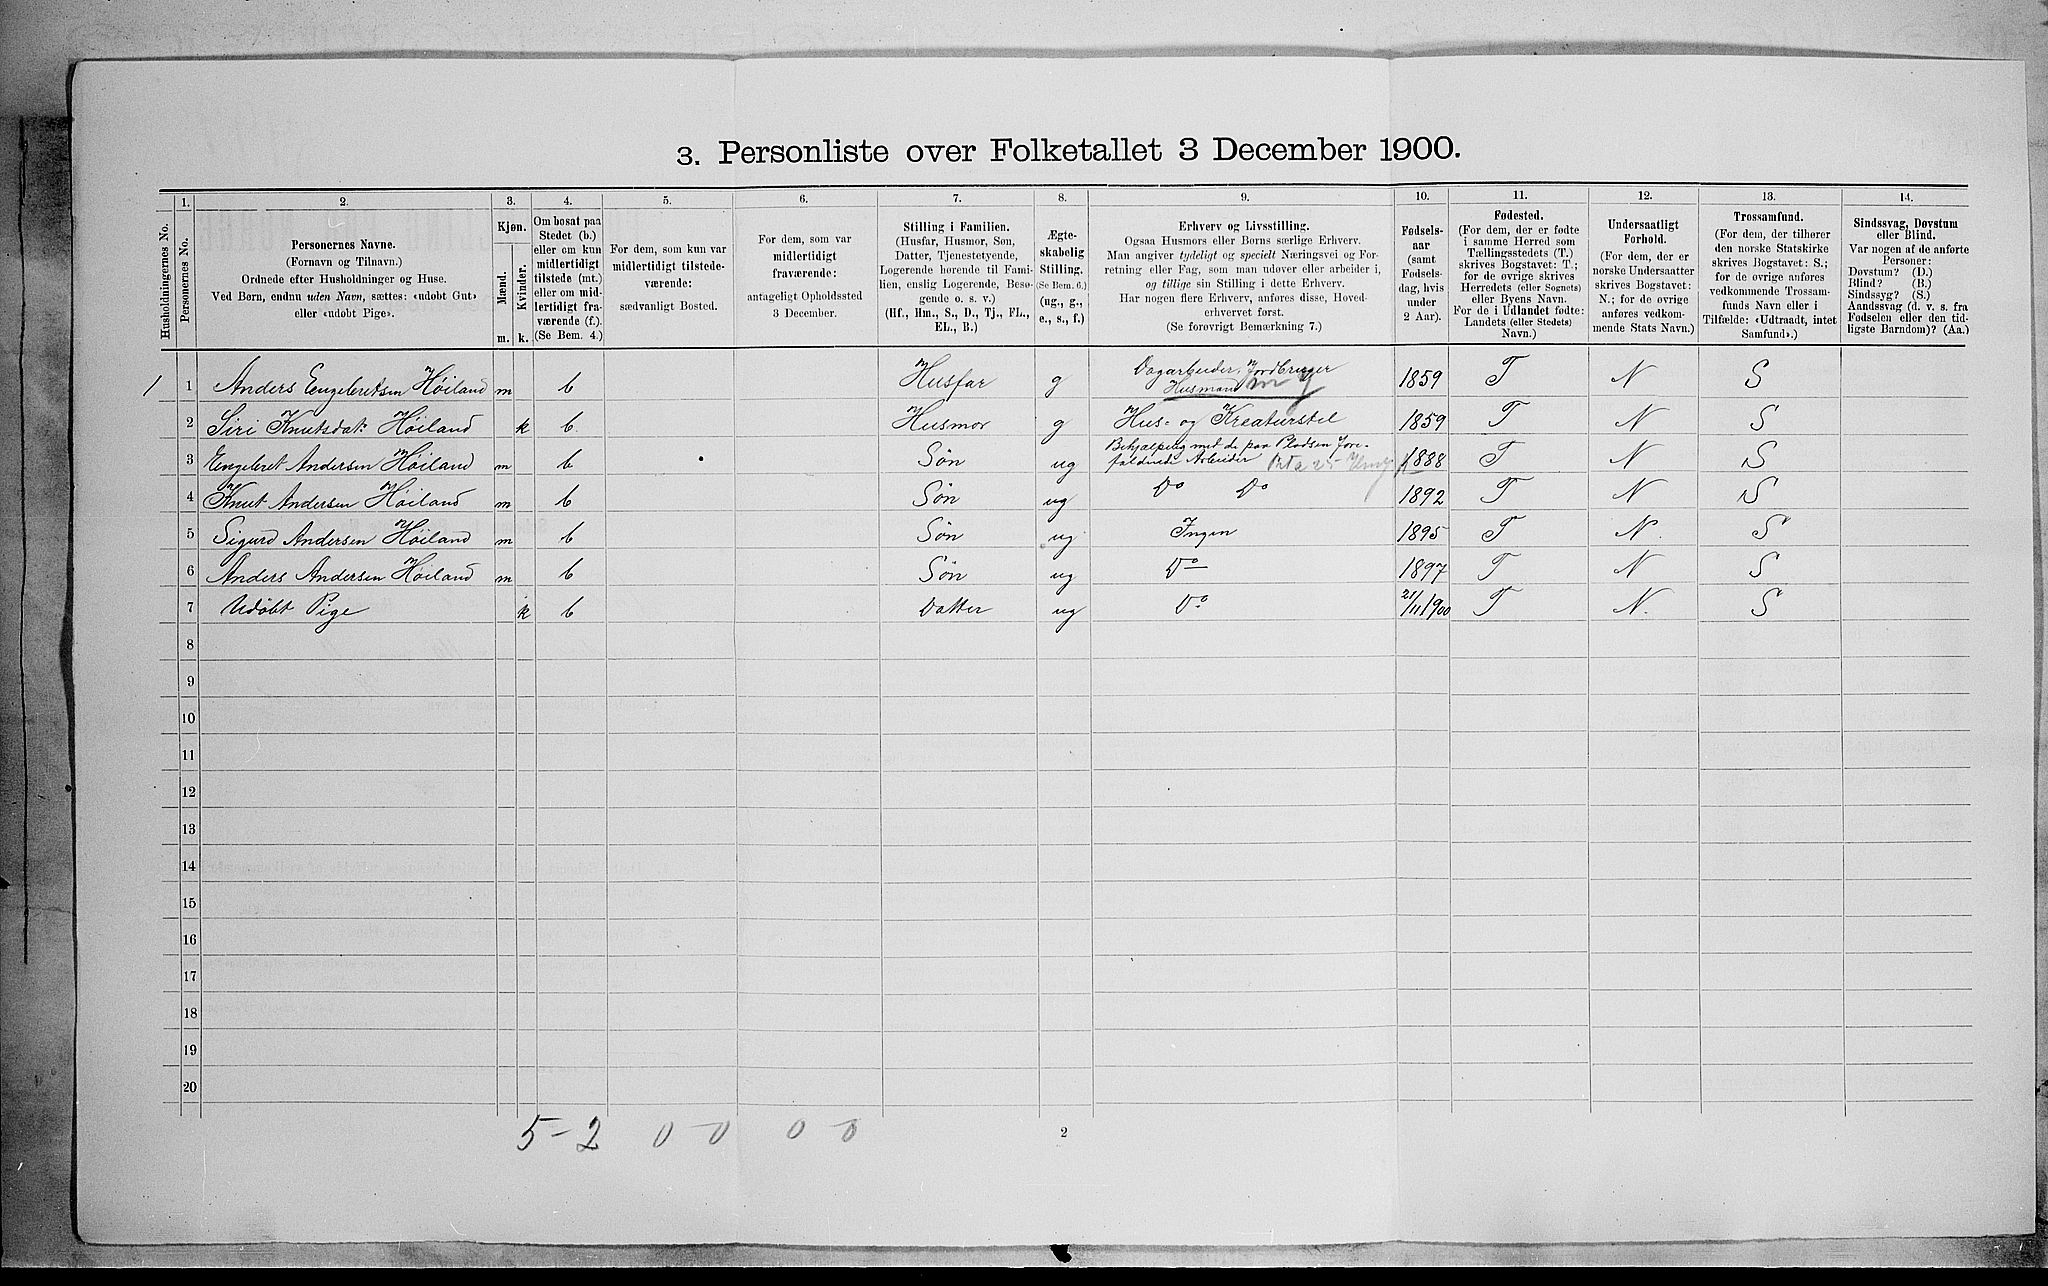 3. Personliste over Folketallet 3 December 1900.
1. 2. 3. 4. 5. 6. 7. 8. 9. 10. 11. 12. 13. 14.
Husholdningernes No.
Personernes No.
Personernes Navne.
(Fornavn og Tilnavn.)
Ordnede efter Husholdninger og Huse.
Ved Børn, endnu uden Navn, sættes: «udøbt Gut»
eller «udøbt Pige».
Kjøn.
Mænd.
Kvinder.
m. k.
Om bosat paa
Stedet (b.)
eller om kun
midlertidigt
tilstede (mt.)
eller om mid-
lertidigt fra-
værende (f.).
(Se Bem. 4.)
For dem, som kun var
midlertidigt tilstede-
værende:
sædvanligt Bosted.
For dem, som var
midlertidigt
fraværende:
antageligt Opholdssted
3 December.
Stilling i Familien.
(Husfar, Husmor, Søn,
Datter, Tjenestetyende,
Logerende hørende til Fami-
lien, enslig Logerende, Besø-
gende o. s. v.)
(Hf., Hm., S., D., Tj., FL.,
EL., B.)
Ægte-
skabelig
Stilling.
(Se Bem. 6.)
(ug., g.,
e., s., f.)
Erhverv og Livsstilling.
Ogsaa Husmors eller Børns særlige Erhverv.
Man angiver tydeligt og specielt Næringsvei og For-
retning eller Fag, som man udøver eller arbeider i,
og tillige sin Stilling i dette Erhverv.
Har nogen flere Erhverv, anføres disse, Hoved-
erhvervet først.
(Se forøvrigt Bemærkning 7.)
Fødsels-
aar
(samt
Fødsels-
dag, hvis
under
2 Aar).
Fødested.
(For dem, der er fødte
i samme Herred som
Tællingsstedets (T.)
skrives Bogstavet: T.;
for de øvrige skrives
Herredets (eller Sognets)
eller Byens Navn.
For de i Udlandet fødte:
Landets (eller Stedets)
Navn.)
Undersaatligt
Forhold.
(For dem, der er
norske Undersaatter
skrives Bogstavet:
N.; for de øvrige
anføres vedkom-
mende Stats Navn.)
Trossamfund.
(For dem, der tilhører
den norske Statskirke
skrives Bogstavet: S.;
for de øvrige anføres
vedkommende Trossam-
funds Navn eller i
Tilfælde: «Udtraadt, intet
Samfund».)
Sindssvag, Døvstum
eller Blind.
Var nogen af de anførte
Personer:
Døvstum? (D.)
Blind? (B.)
Sindssyg? (S.)
Aandssvag (d. v. s. fra
Fødselen eller den tid-
ligste Barndom)? (Aa.)
1 1 Anders Engebretsen Høiland m b Husfar g Dagarbeider, Jordbruger Husmand 1859 T N S
2 Siri Knutsdat. Høiland k b. Husmor g Hus- og Kreaturstel 1859 T N S
3 Engebret Andersen Høiland m b Søn ug Behjælpelig med de paa Pladsen fore-
faldende Arbeider 1888 T N S
4 Knut Andersen Høiland m b Søn ug Do Do 1892 T N S
5 Sigurd Andersen Høiland m b Søn ug Ingen 1895 T N. S
6 Anders Andersen Høiland m b Søn ug Do 1897 T N S
7 Udøbt Pige k b Datter ug Do 21/11 1900 T N. S
8
9
10
11
12
13
14
15
16
17
18
19
20
5-2 0-0 0-0
2